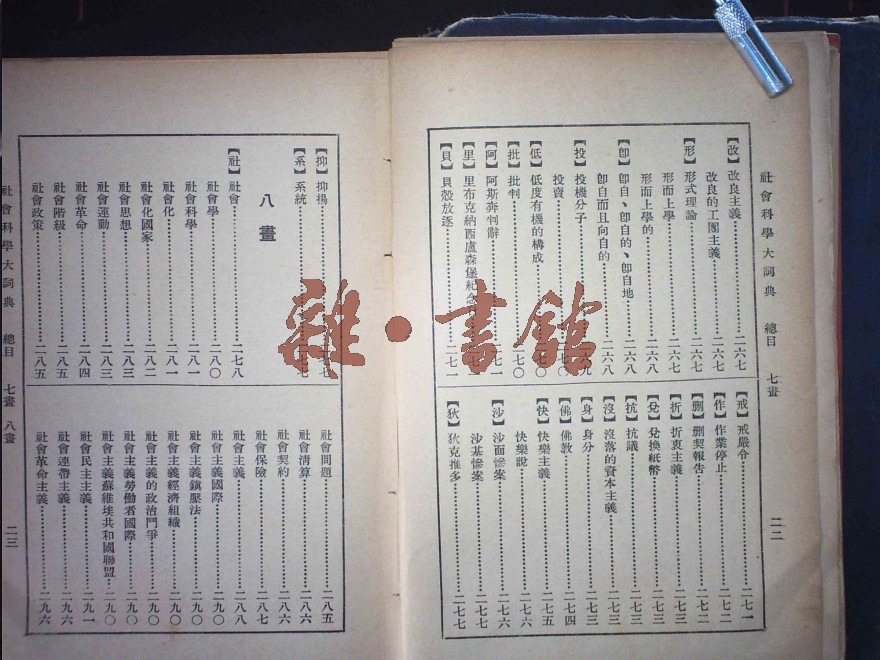 社會科學大詞典 總目 七畫 二二
【改】改良主義 二六七
改良的工團主義 二六七
【形】形式理論 二六七
形而上學 二六八
形而上學的 二六八
【卽】卽自、卽自的、卽自地 二六八
卽自而且向自的 二六八
【投】投機分子
投賣
【低】低度有機的構成
【批】批判 二七〇
【阿】阿斯奔判辭
【里】里布克納西盧森堡紀念
【貝】貝殼放逐 二七一
【戒】戒嚴令 二七一
【作】作業停止 二七二
【刪】刪契報告 二七二
【折】折衷主義 二七三
【兌】兌換紙幣 二七三
【抗】抗議 二七三
【沒】沒落的資本主義 二七三
【身】身分 二七三
【佛】佛教 二七四
【快】快樂主義 二七五
快樂說 二七六
【沙】沙面慘案 二七六
沙基慘案 二七七
【狄】狄克推多 二七七
【抑】抑揚
【系】系統
八畫
【社】社會 二七八
社會學 二八〇
社會科學 二八一
社會化 二八一
社會化國家 二八二
社會思想 二八三
社會運動 二八三
社會革命 二八四
社會階級 二八五
社會政策 二八五
社會問題 二八五
社會清算 二八六
社會契約 二八六
社會保險 二八七
社會主義 二八八
社會主義國際 二九〇
社會主義鎮壓法 二九〇
社會主義經濟組織 二九〇
社會主義的政治鬥爭 二九〇
社會主義勞働者國際 二九〇
社會主義蘇維埃共和國聯盟 二九〇
社會民主主義 二九一
社會連帶主義 二九六
社會革命主義 二九六
社會科學大詞典 總目 七畫 八畫 二三
雜·書館